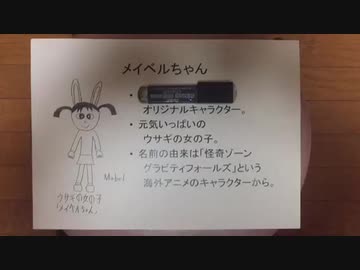 メイベルちゃん
・
オリジナルキャラクター。
・元気いっぱいの
ウサギの女の子。
・名前の由来は「怪奇ゾーン
グラビティフォールズ」という
海外アニメのキャラクターから。
Mabel
ウサギの女の子
「メイベルちゃん」